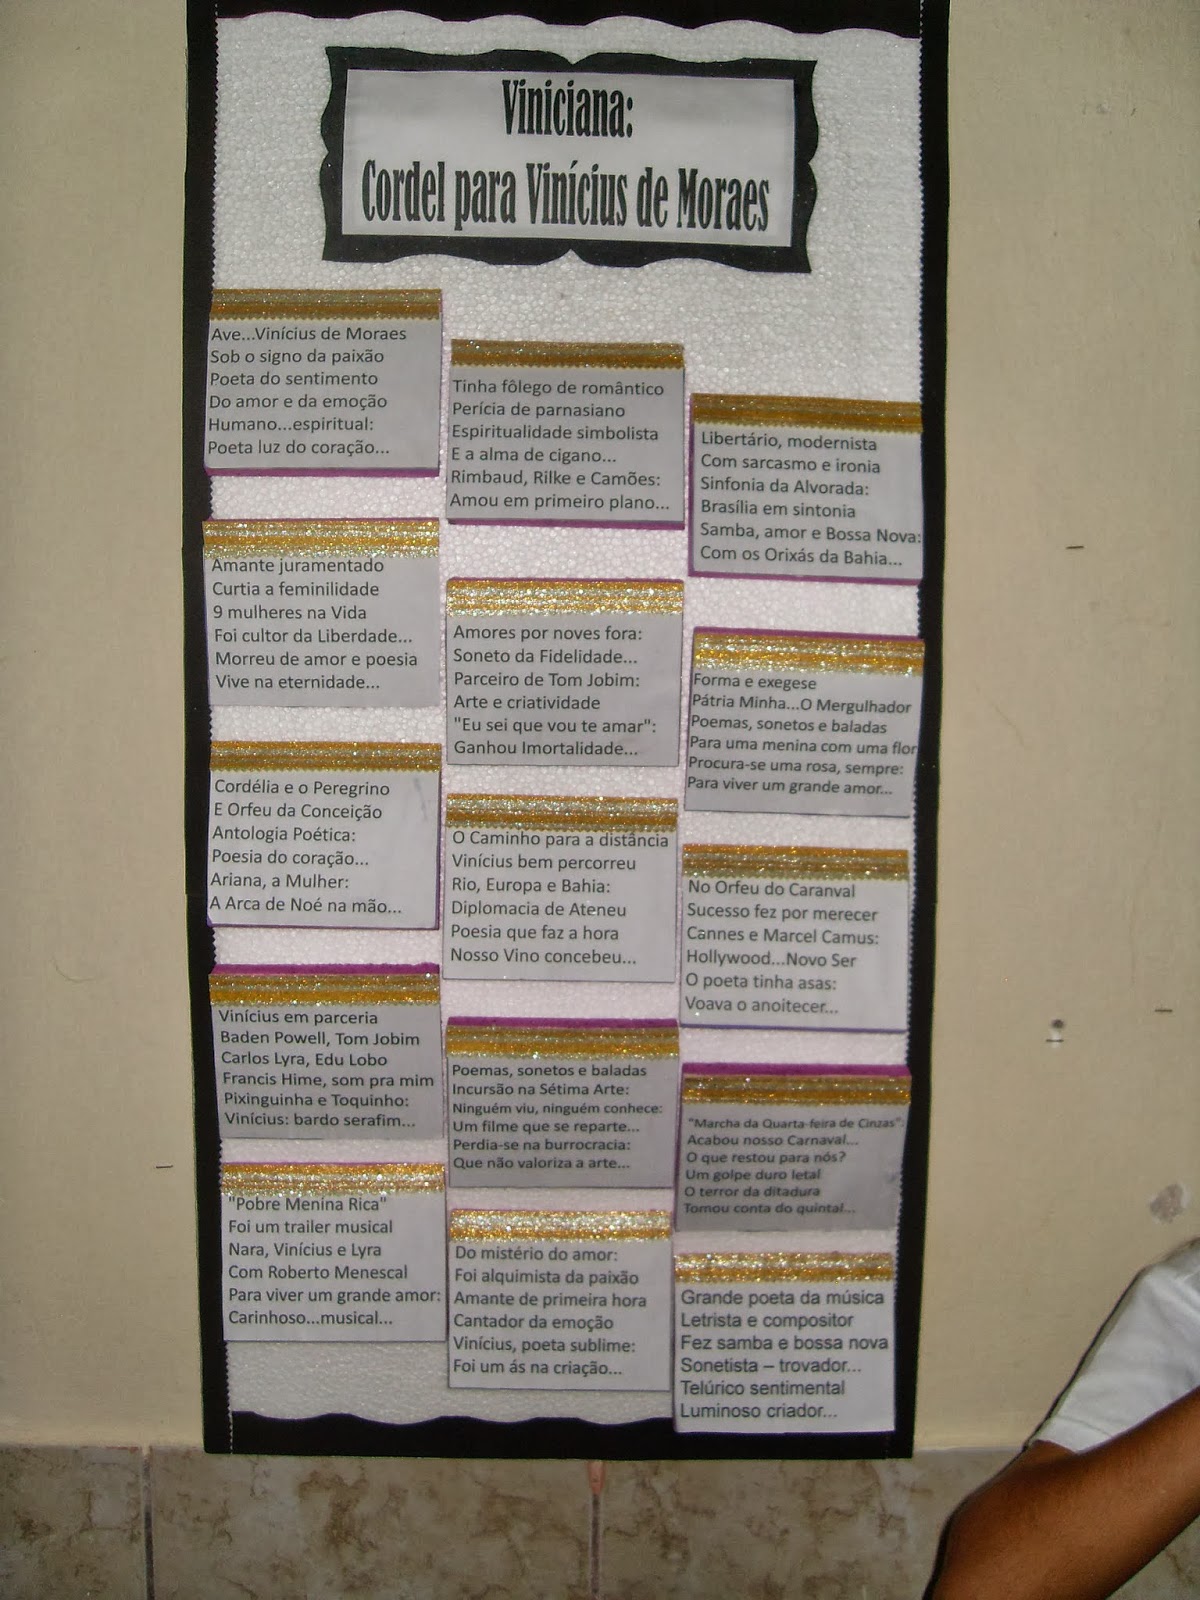 Viniciana:
Cordel para Vinícius de Moraes
Ave...Vinícius de Moraes
Sob o signo da paixão
Poeta do sentimento
Do amor e da emoção
Humano...espiritual:
Poeta luz do coração...
Tinha fôlego de romântico
Perícia de parnasiano
Espiritualidade simbolista
E a alma de cigano...
Rimbaud, Rilke e Camões:
Amou em primeiro plano...
Libertário, modernista
Com sarcasmo e ironia
Sinfonia da Alvorada:
Brasília em sintonia
Samba, amor e Bossa Nova:
Com os Orixás da Bahia...
Amante juramentado
Curtia a feminilidade
9 mulheres na Vida
Foi cultor da Liberdade...
Morreu de amor e poesia
Vive na eternidade...
Amores por noves fora:
Soneto da Fidelidade...
Parceiro de Tom Jobim:
Arte e criatividade
"Eu sei que vou te amar":
Ganhou Imortalidade...
Forma e exegese
Pátria Minha...O Mergulhador
Poemas, sonetos e baladas
Para uma menina com uma flor
Procura-se uma rosa, sempre:
Para viver um grande amor...
Cordélia e o Peregrino
E Orfeu da Conceição
Antologia Poética:
Poesia do coração...
Ariana, a Mulher:
A Arca de Noé na mão...
O Caminho para a distância
Vinícius bem percorreu
Rio, Europa e Bahia:
Diplomacia de Ateneu
Poesia que faz a hora
Nosso Vino concebeu...
No Orfeu do Caranval
Sucesso fez por merecer
Cannes e Marcel Camus:
Hollywood...Novo Ser
O poeta tinha asas:
Voava o anoitecer...
Vinícius em parceria
Baden Powell, Tom Jobim
Carlos Lyra, Edu Lobo
Francis Hime, som pra mim
Pixinguinha e Toquinho:
Vinícius: bardo serafim...
Poemas, sonetos e baladas
Incursão na Sétima Arte:
Ninguém viu, ninguém conhece:
Um filme que se reparte...
Perdia-se na burrocracia:
Que não valoriza a arte...
"Marcha da Quarta-feira de Cinzas":
Acabou nosso Carnaval...
O que restou para nós?
Um golpe duro letal
O terror da ditadura
Tomou conta do quintal...
"Pobre Menina Rica"
Foi um trailer musical
Nara, Vinícius e Lyra
Com Roberto Menescal
Para viver um grande amor:
Carinhoso...musical...
Do mistério do amor:
Foi alquimista da paixão
Amante de primeira hora
Cantador da emoção
Vinícius, poeta sublime:
Foi um ás na criação...
Grande poeta da música
Letrista e compositor
Fez samba e bossa nova
Sonetista – trovador...
Telúrico sentimental
Luminoso criador...